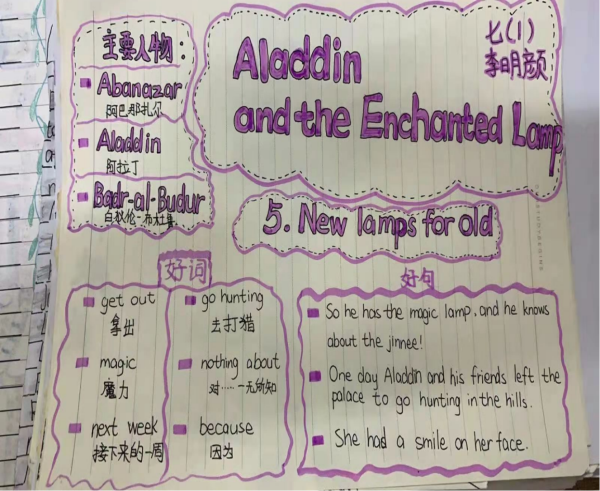 主要人物：
Abanazar
阿巴那扎尔
Aladdin
阿拉丁
Badr-al-Budur
Aladdin
and the Enchanted Lamp
七(1)
李明颜
5. New lamps for old
好词
get out
拿出
magic
魔力
next week
接下来的一周
go hunting
去打猎
nothing about
对……一无所知
because
因为
好句
So he has the magic lamp, and he knows
about the jinnee!
One day Aladdin and his friends left the
palace to go hunting in the hills.
She had a smile on her face.